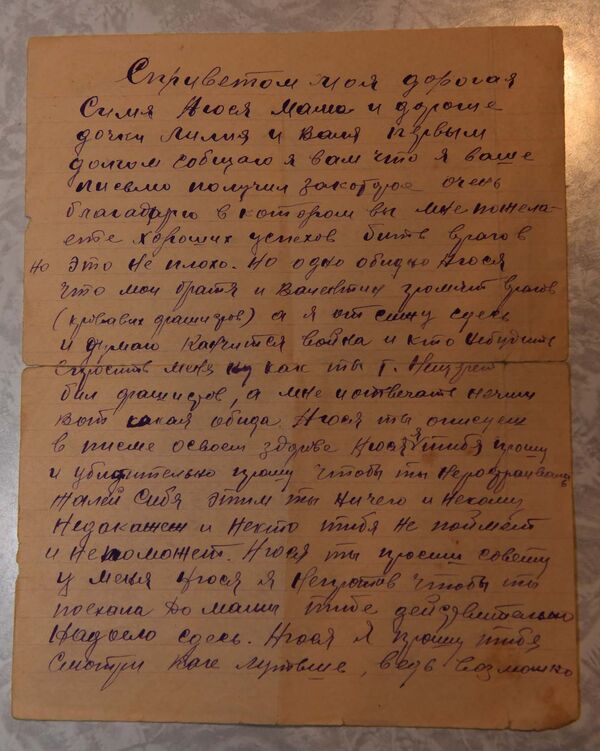 Сприветом моя дорогая
Симя Нюся Маша и дорогие
дочки Лилия и Валя первым
долгом собщаю я вам что я ваше
письмо получил закоторое очень
благадарю в котором вы мне пожела-
ете хороших успехов бить врагов
но это не плохо. Но одно обидно Нюся
что мои братя и Валентин громят врагов
(кровавих фашизров) а я от сижу сдесь
и думаю кончится война и кто небудить
спросить меня ну как ты Г.
бил фашизров, а мне и отвечать нечим
Вот какая обида. Нюся ты описуеш
в писме освоем здорове Нюся я тибя прошу
и убидительно прошу чтобы ты нерозтраивалась
жалей сибя этим ты ничего и некому
недакажеш и некто тибя не поймёт
и непоможет. Нюся ты просиш совету
у меня Нюся я непротив чтобы ты
поехала до маши тибе действительно
надоело сдесь. Нюся я прошу тибя
смотри как лутьше, ведь возможно